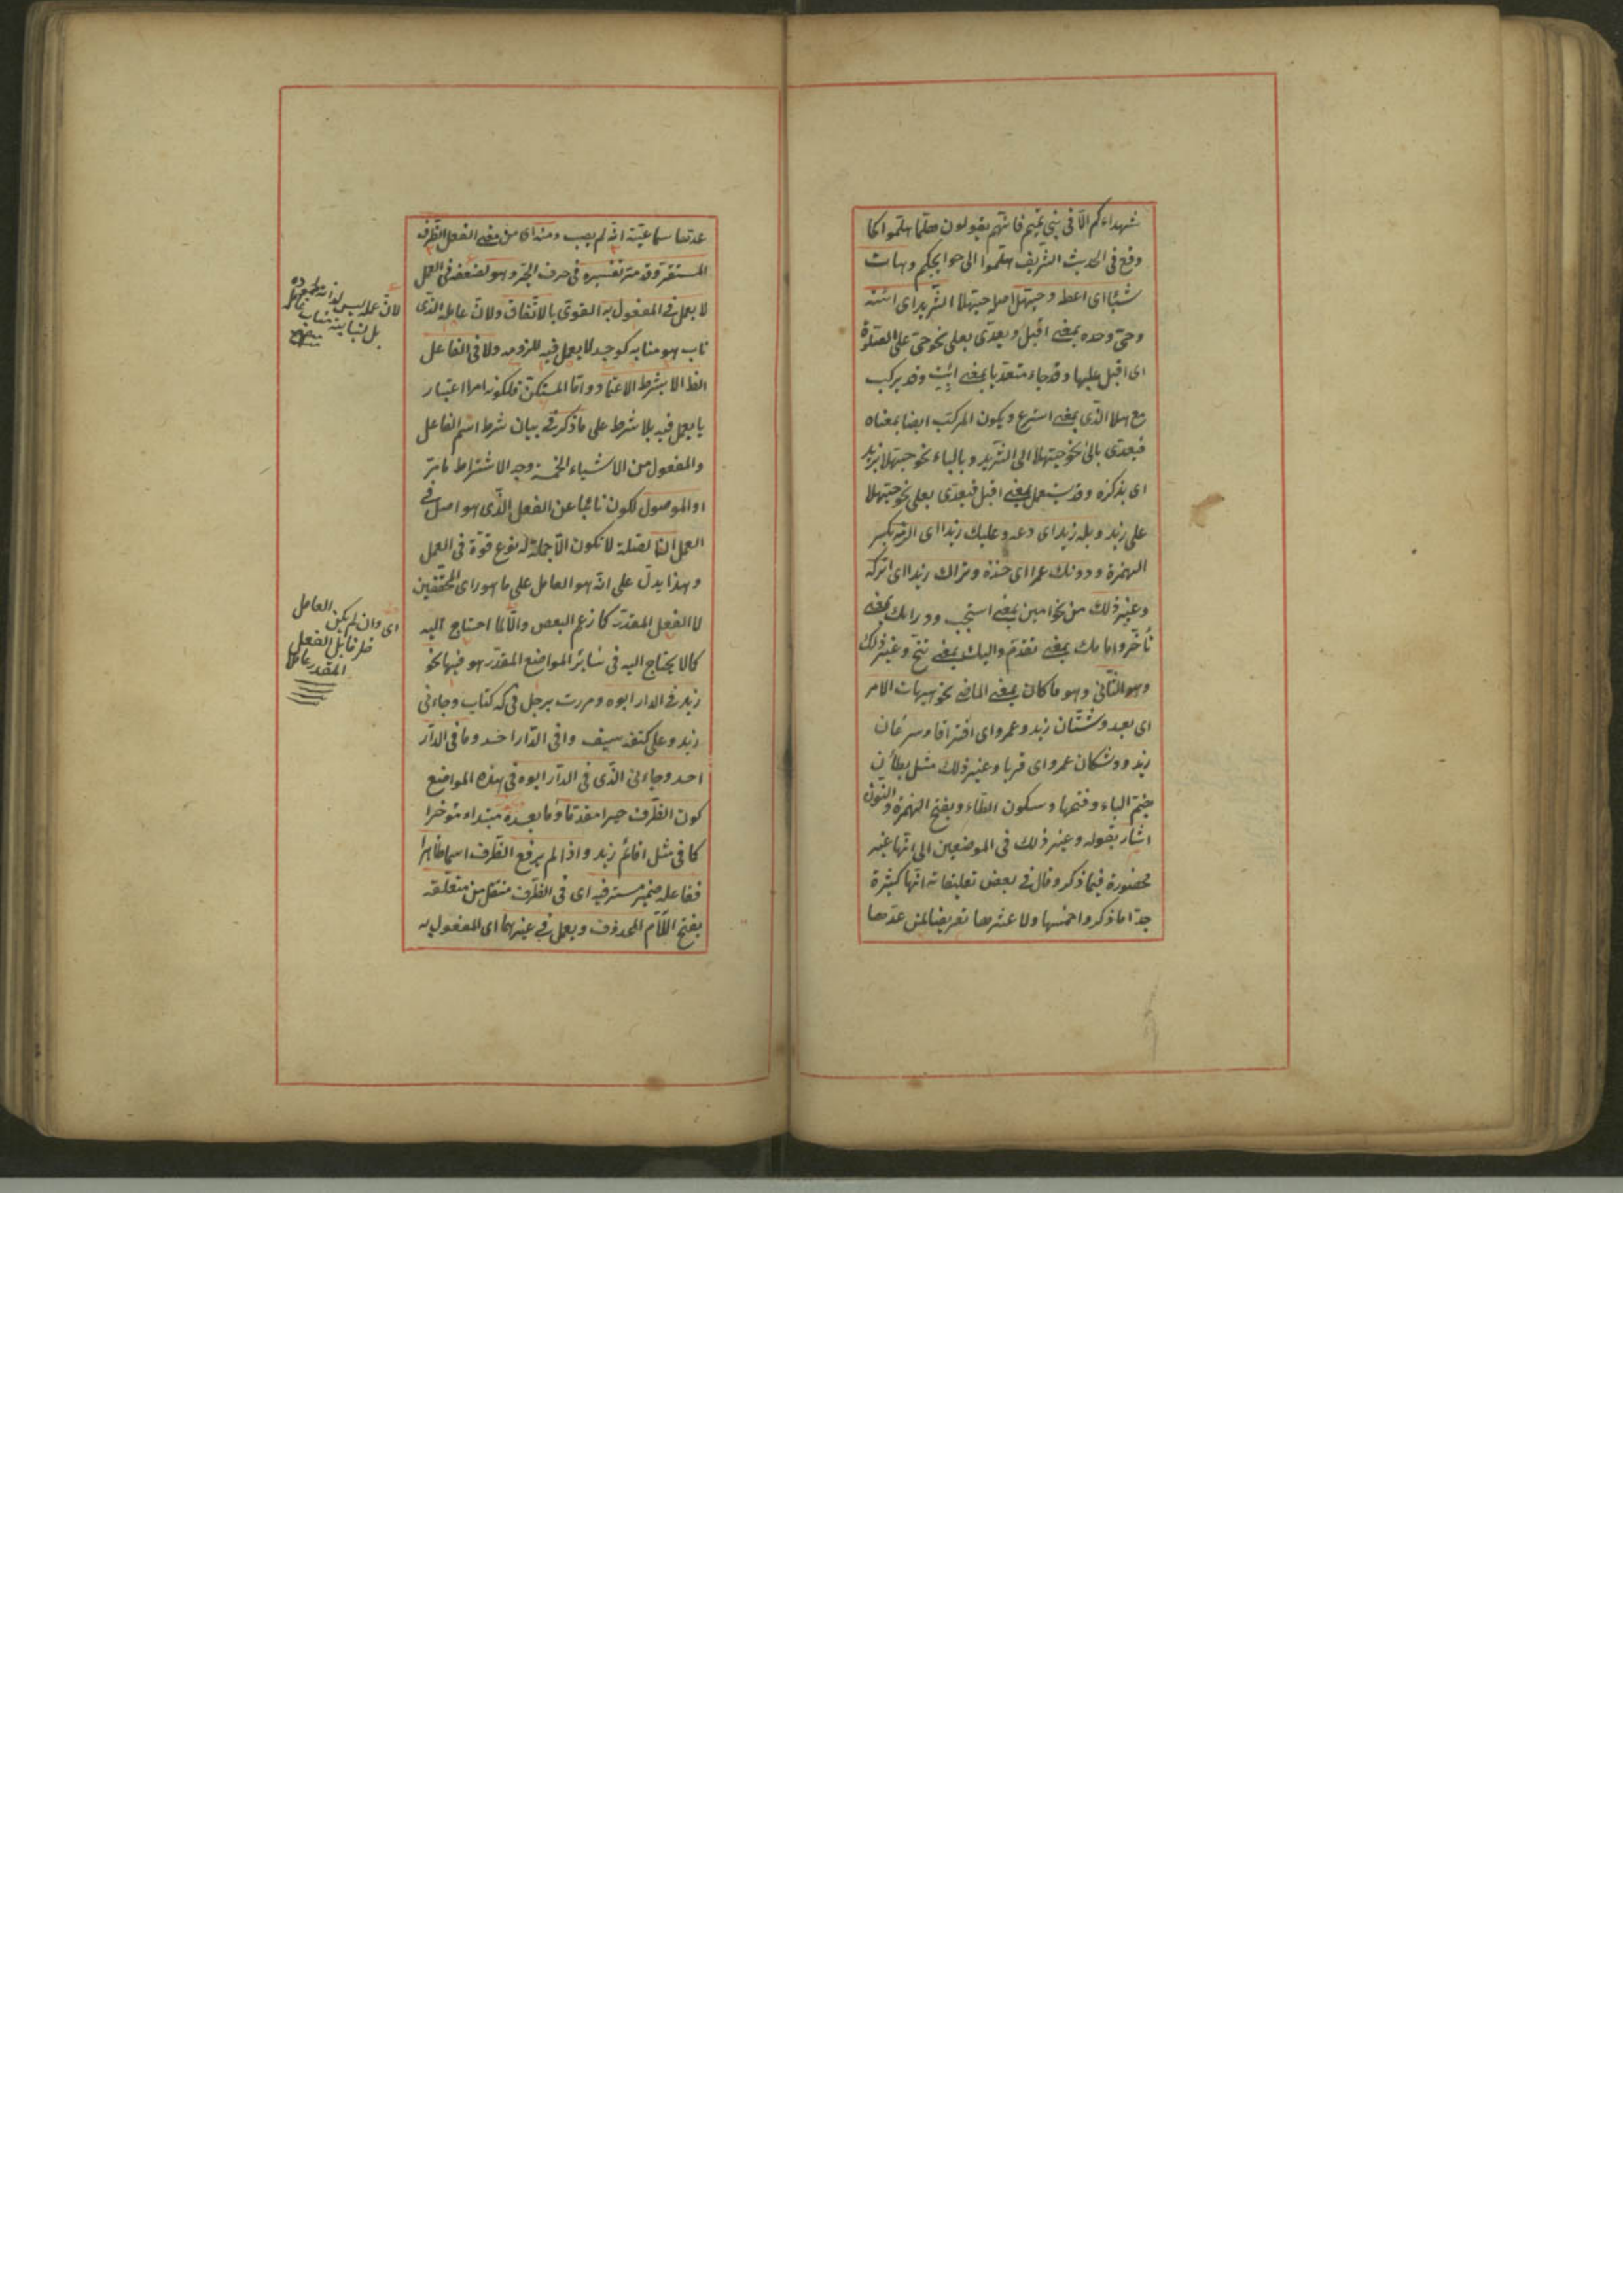 شهداءكم الا فى بنى تميم فانهم يقولون هلما هلموا كما
وقع فى الحديث الشريف هلموا الى حوايجكم وهات
شيئا اى اعط وحيهل اصله حيهلا الثريد اى ائته
وحى وحده بمعنى اقبل ويعدى بعلى نحو حى على الصلوة
اى اقبل عليها وقد جاء متعديا بمعنى ائت وقد يركب
مع هلا الذى بمعنى اسرع ويكون المركب ايضا بمعناه
فيعدى بالى نحو حيهلا الى الثريد وبالباء نحو حيهلا بزيد
اى بذكره وقد يستعمل بمعنى اقبل فيعدى بعلى نحو حيهلا
على زيد وبله زيدا اى دعه وعليك زيدا اى الزمه بكسر
الهمزة ودونك عمرا اى خذه وتراك زيدا اى اتركه
وغير ذلك من نحو امين بمعنى استجب ووراءك بمعنى
تأخر وامامك بمعنى تقدم واليك بمعنى تنح وغير ذلك
وهو الثانى وهو ما كان بمعنى الماضى نحو هيهات الامر
اى بعد وشتان زيد وعمرو اى افترقا وسرعان
زيد ووشكان عمرو اى قربا وغير ذلك مثل بطآن
بضم الباء وفتحها وسكون الطاء وبفتح الهمزة والنون
اشار بقوله وغير ذلك فى الموضعين الى انها غير
محصورة فيما ذكر وقال فى بعض تعليقاته انها كثيرة
جدا ما ذكروا خمسها ولا عشرها تعريضا لمن عدها
عدتها سماعية انه لم يصب ومنه اى من معنى الفعل الظرف
المستقر وقد مر تفسيره فى حرف الجر وهو لضعفه فى العمل
لا يعمل فى المفعول به القوى بالاتفاق ولان عامله الذى
ناب هو منابه كوجد لا يعمل فيه للزومه ولا فى الفاعل
الظ الا بشرط الاعتماد واما المستكن فلكونه امرا اعتبار
يا يعمل فيه بلا شرط على ما ذكر فى بيان شرط اسم الفاعل
والمفعول من الاشياء الخمسة وجه الاشتراط ما مر
او الموصول لكون نائبا عن الفعل الذى هو اصل فى
العمل الصلة لا تكون الا جملة له نوع قوة فى العمل
وهذا يدل على انه هو العامل على ما هو راى المحققين
لا الفعل المقدر كما زعم البعض والا لما احتاج اليه
كما لا يحتاج اليه فى سائر المواضع المقدر هو فيها نحو
زيد فى الدار ابوه ومررت برجل فى كمه كتاب وجاءنى
زيد وعلى كتفه سيف وافى الدار احد وما فى الدار
احد وجاءنى الذى فى الدار ابوه فى هذه المواضع
كون الظرف خبرا مقدما وما بعده مبتداء مؤخرا
كما فى مثل اقائم زيد واذا لم يرفع الظرف اسما ظاهرا
ففاعله ضمير مستتر فيه اى فى الظرف منتقل من متعلقه
بفتح اللام المحذوف ويعمل فى غيرهما اى المفعول به
لان عمله ليس لذاته
بل لنيابته مناب
اى وان لم يكن العامل
الفعل
المقدر عاملا